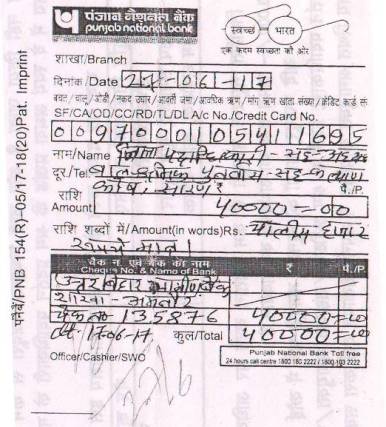 पंजाब नैशनल बैंक
punjab national bank
स्वच्छ भारत
एक कदम स्वच्छता की ओर
शाखा/Branch
दिनांक/Date 27-06-17
बचत/चालू/ओडी/नकद उधार/आवर्ती जमा/आवधिक ऋण/मांग ऋण खाता संख्या/क्रेडिट कार्ड सं
SF/CA/OD/CC/RD/TL/DL A/c No./Credit Card No.
0097000105411695
नाम/Name जिला पदाधिकारी-सह-अध्यक्ष
दूर./Tel. बाल श्रमिक पुनर्वास-सह-कल्याण
कोष, सारण ₹ पै./P.
राशि
Amount 40000=00
राशि शब्दों में/Amount(in words)Rs. चालीस हजार
रूपये मात्र।
चैक न. एवं बैंक का नाम ₹ पै./P.
Cheque No. & Name of Bank
उत्तर बिहार ग्रामीण बैंक
शाखा-अमनौर
चेक नं० 135876 40000=00
दि० 17-06-17 कुल/Total 40000=00
Officer/Cashier/SWO
Punjab National Bank Toll free
24 hours call centre 1800 180 2222 / 1800 103 2222
पनैबैं/PNB 154(R)-05/17-18(20)Pat. Imprint